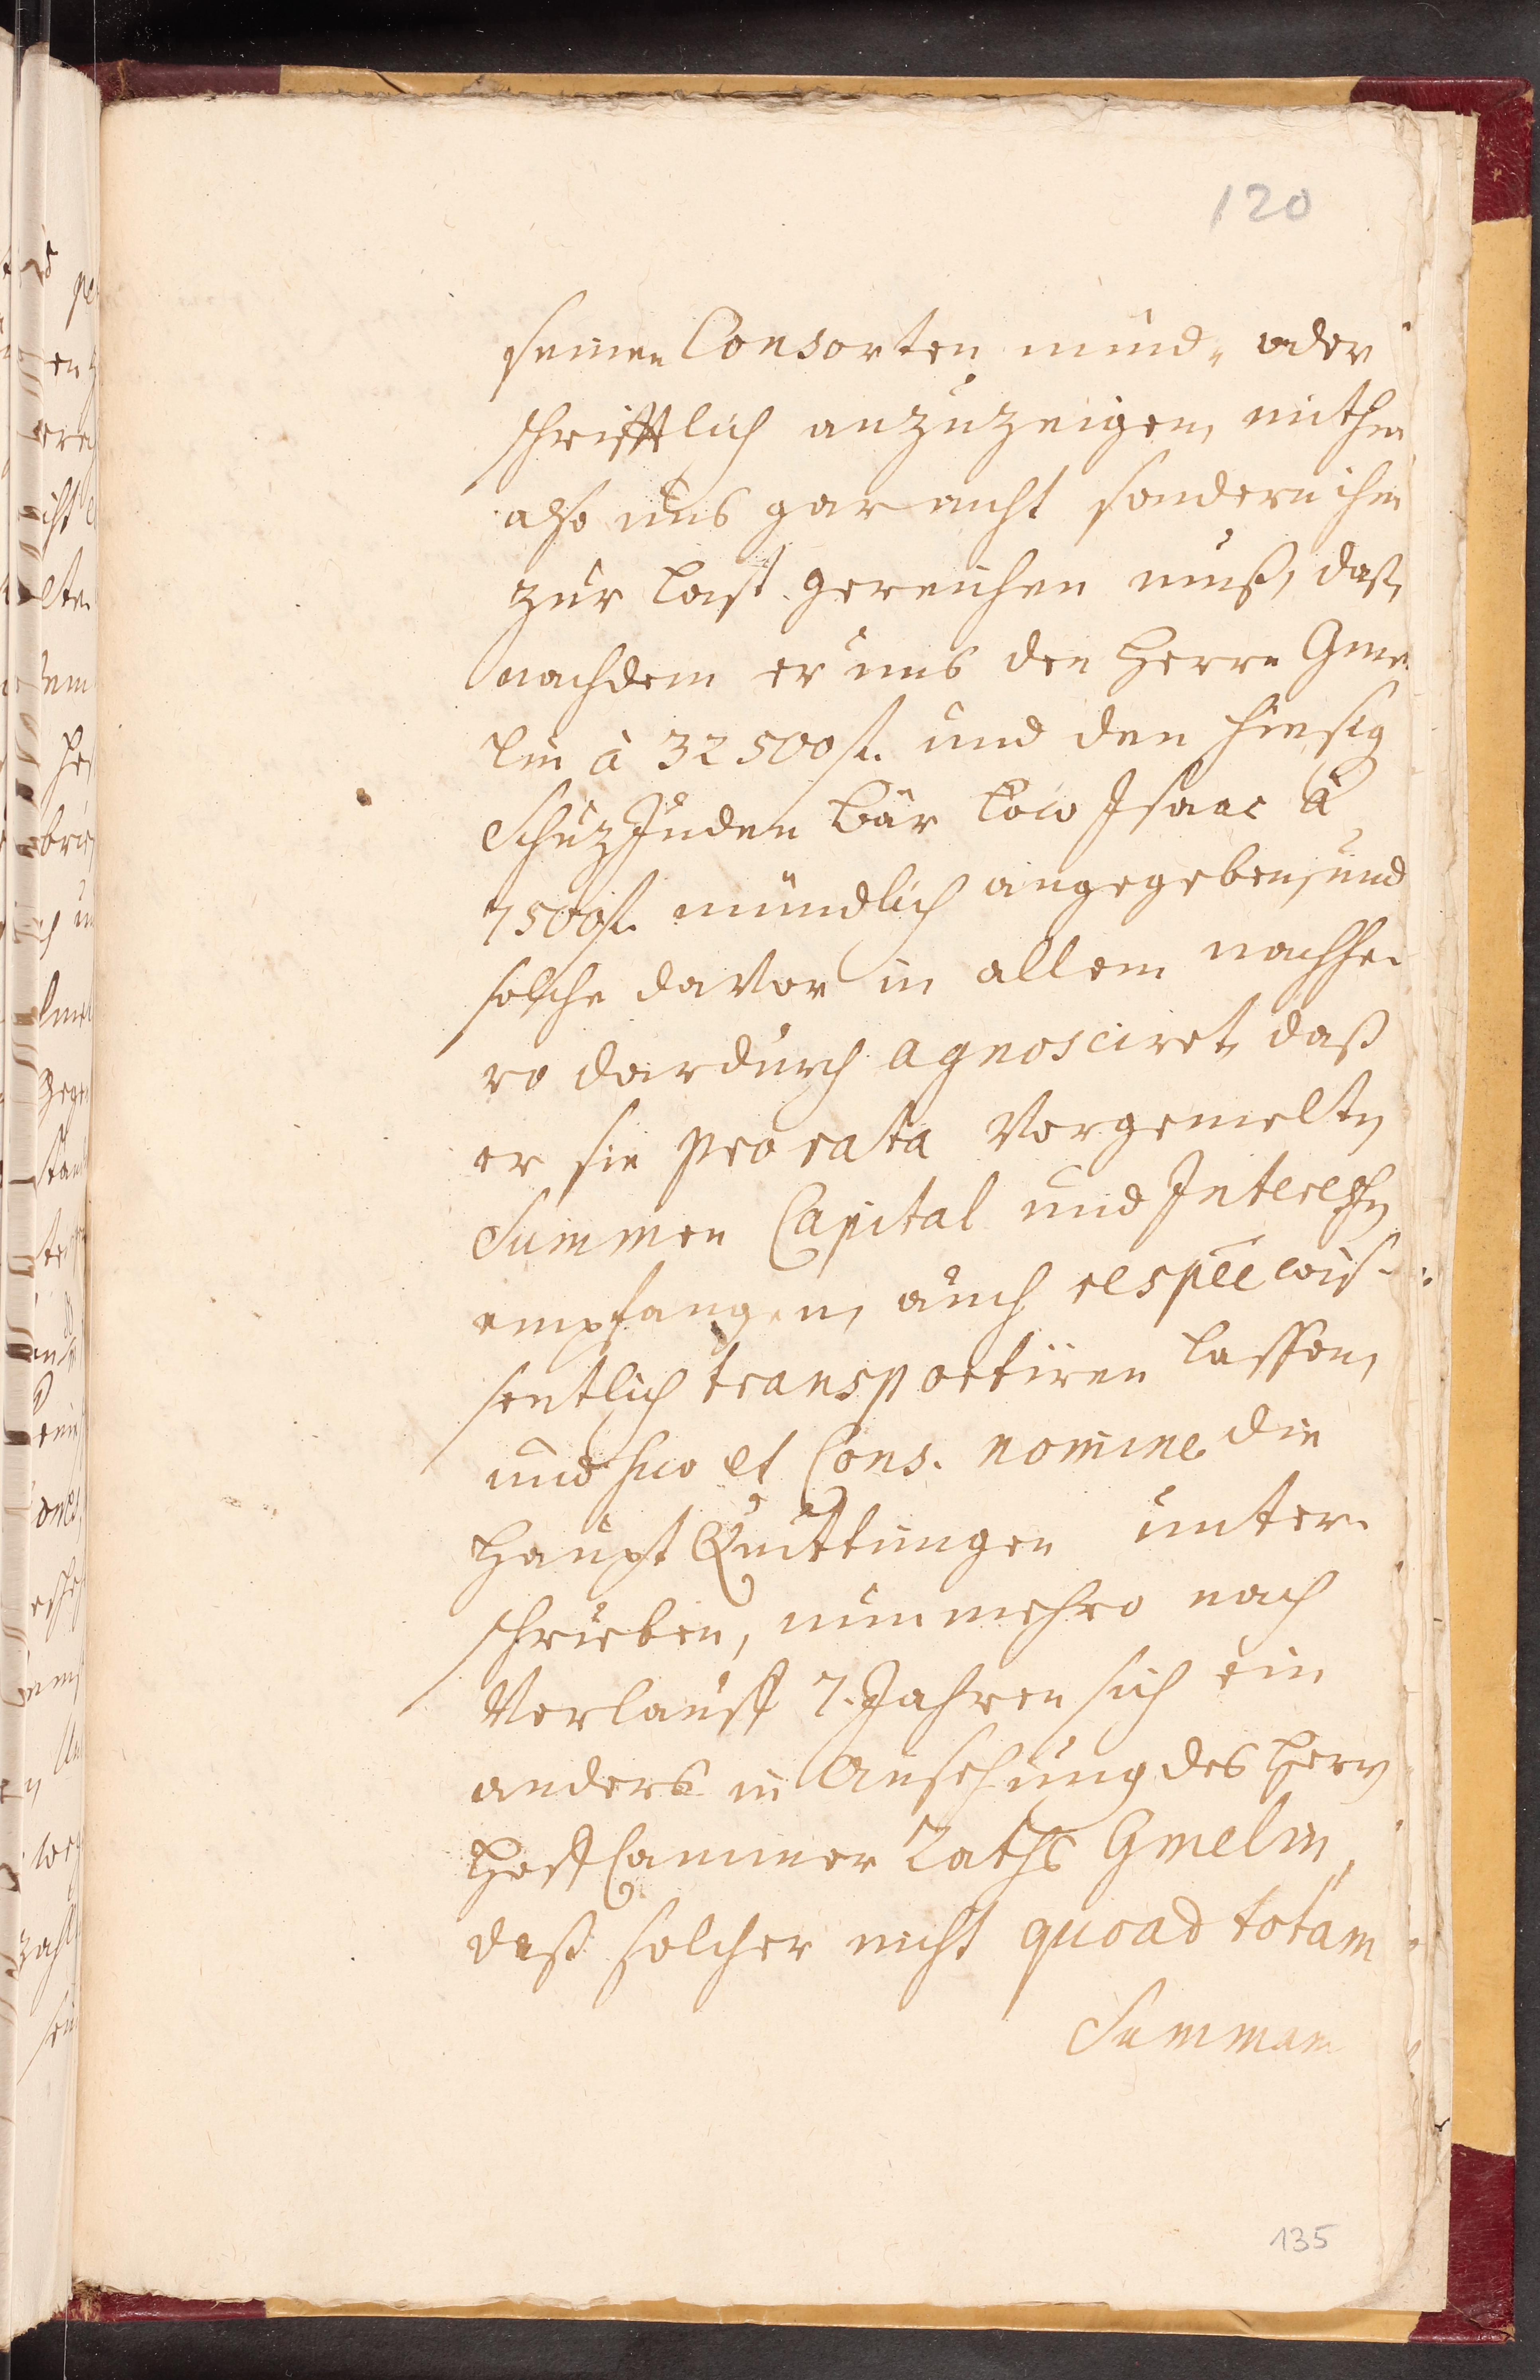 120
seinen Consorten mund- oder
schrifftlich anzuzeigen, mithin
also uns gar nicht sondern ihm
zur Last gereichen muß, daß,
nachdem er uns den Herrn Gme-
lin à 32500 fl. und den hiesig
Schuz Juden Bär Löw Isaac à
7500 fl. mündlich angegeben, und
solche davor in allem nachhe-
ro dardurch agnosciret, daß
er sie pro rata Vorgemelten
Summen Capital und Interessen
empfangen, auch respee wis-
sentlich transportiren lassen,
und suo et Cons. nomine die
Haupt Quittungen unter-
schrieben, nunmehro nach
Verlauff 7. Jahren sich ein
anders in Ansehung des Herrn
Hoff Cammer Raths Gmelin,
daß solcher nicht quoad totam
Summam
135